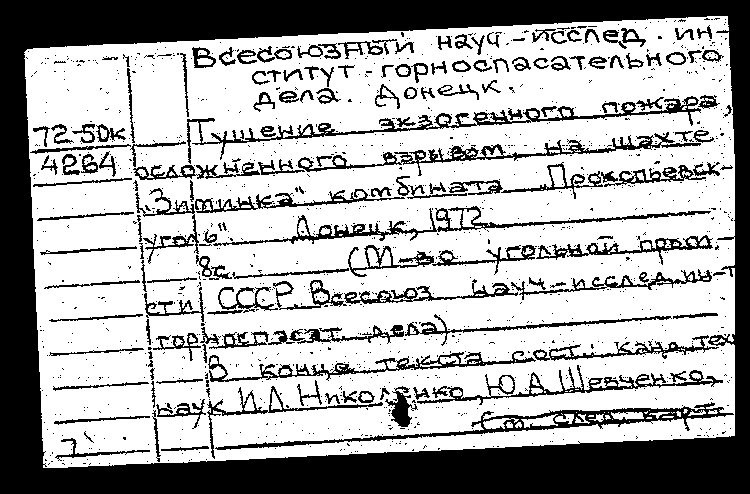 Всесоюзный науч.-исслед. ин-
ститут горноспасательного
дела. Донецк.
72-50к
4264
Тушение экзогенного пожара,
осложненного взрывом, на шахте
"Зиминка" комбината "Прокопьевск-
уголь". Донецк, 1972.
8с. (М-во угольной пром-
сти СССР. Всесоюз науч-исслед. ин-т
горноспасат. дела)
В конце текста сост.: канд. техн
наук И.Л. Николенко, Ю.А. Шевченко,
См. след. карт.
7